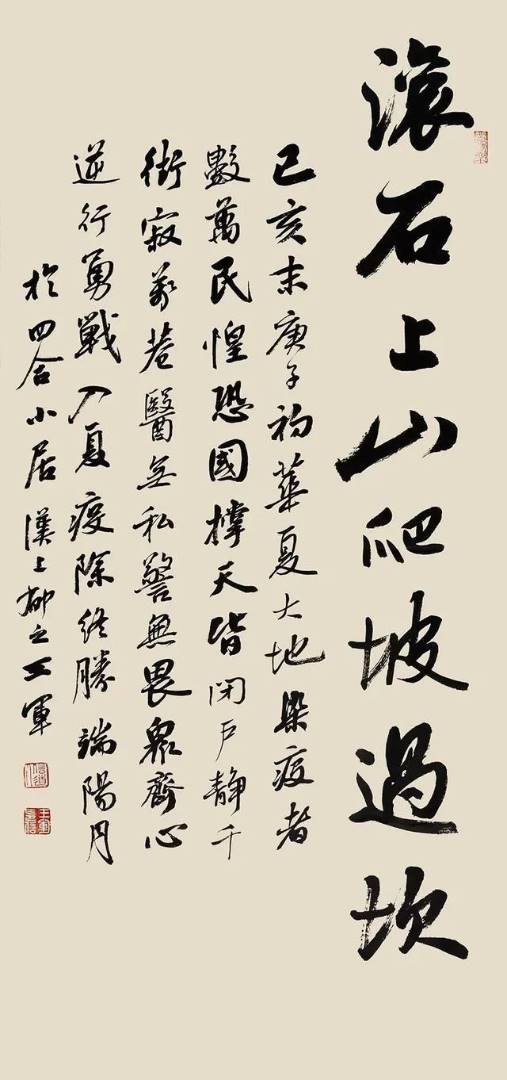 滾石上山爬坡過坎
己亥末庚子初華夏大地染疫者
數萬民惶恐國撑天皆闭户静千
街寂萬巷醫無私警無畏眾齊心
逆行勇戰入夏疫除终勝端陽月
於四合小居漢上柳之王軍